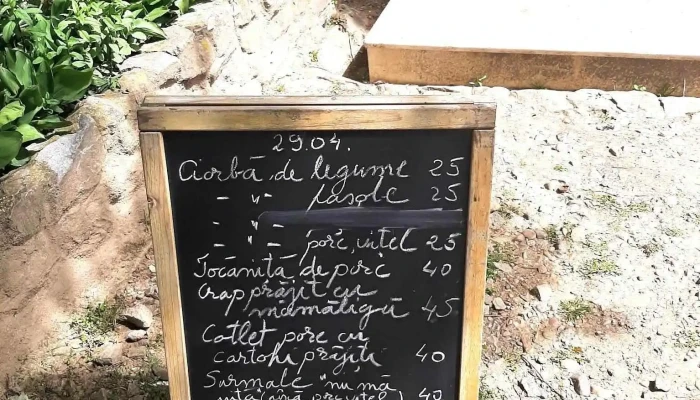 29.04.
Ciorbă de legume 25
– " – fasole 25
– " –
– " – porc, vițel 25
Tocăniță de porc 40
Crap prăjit cu
mămăligă 45
Cotlet porc cu
cartofi prăjiți 40
Sarmale "nu mă
uita" porc, vițel) 40